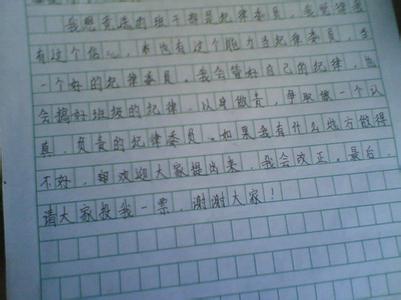 我想竞选的班干部是纪律委员，我觉得我
有这个信心，也有这个能力当纪律委员，当
一个好的纪律委员，我会管好自己的纪律，也
会搞好班级的纪律，以身做责，争取做一个认
真、负责的纪律委员。如果我有什么地方做得
不好，欢迎大家提出来，我会改正。最后，
请大家投我一票，谢谢大家！